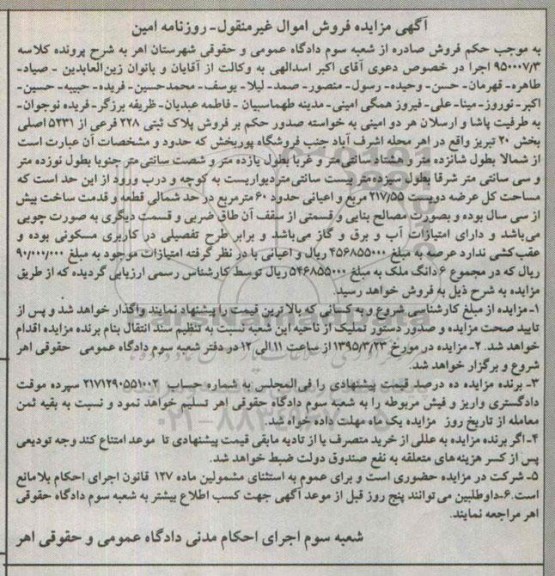 آگهی مزایده فروش اموال غیرمنقول- روزنامه امین
به موجب حکم فروش صادره از شعبه سوم دادگاه عمومی و حقوقی شهرستان اهر به شرح پرونده کلاسه
۹۵۰۰۰۷/۳ اجرا در خصوص دعوی آقای اکبر اسدالهی به وکالت از آقایان و بانوان زین‌العابدین - صیاد-
طاهره- قهرمان- حسن- وحیده- رسول- منصور- صمد- لیلا- یوسف- محمدحسین- فریده- حبیبه- حسین-
اکبر- نوروز- مینا- علی- فیروز همگی امینی- مدینه طهماسبیان- فاطمه عبدیان- ظریفه برزگر- فریده نوجوان-
به طرفیت پاشا و ارسلان هر دو امینی به خواسته صدور حکم بر فروش پلاک ثبتی ۲۲۸ فرعی از ۵۲۳۱ اصلی
بخش ۲۰ تبریز واقع در اهر محله اشرف آباد جنب فروشگاه پوربخش که حدود و مشخصات آن عبارت است
از شمالا بطول شانزده متر و هشتاد سانتی متر و غربا بطول یازده متر و شصت سانتی متر جنوبا بطول نوزده متر
و سی سانتی متر شرقا بطول سیزده متر بیست سانتی متر دیواریست به کوچه و درب ورود از این حد است که
مساحت کل عرصه دویست ۲۱۷/۵۵ متر مربع و اعیانی حدود ۶۰ مترمربع در حد شمالی قطعه و قدمت ساخت بیش
از سی سال بوده و بصورت مصالح بنایی و قسمتی از سقف آن طاق ضربی و قسمت دیگری به صورت چوبی
می‌باشد و دارای امتیازات آب و برق و گاز می‌باشد و برابر طرح تفصیلی در کاربری مسکونی بوده و
عقب‌کشی ندارد عرصه به مبلغ ۴۵۶۸۵۵۰۰۰ ریال و اعیانی با در نظر گرفته امتیازات موجود به مبلغ ۹۰/۰۰۰/۰۰۰
ریال که در مجموع ۶ دانگ ملک به مبلغ ۵۴۶۸۵۵۰۰۰ ریال توسط کارشناس رسمی ارزیابی گردیده که از طریق
مزایده به شرح ذیل به فروش خواهد رسید.
۱- مزایده از مبلغ کارشناسی شروع و به کسانی که بالاترین قیمت را پیشنهاد نمایند واگذار خواهد شد و پس از
تایید صحت مزایده و صدور دستور تملیک از ناحیه این شعبه نسبت به تنظیم سند انتقال بنام برنده مزایده اقدام
خواهد شد. ۲- مزایده در مورخ ۱۳۹۵/۳/۲۳ از ساعت ۱۱ الی ۱۲ در دفتر شعبه سوم دادگاه عمومی حقوقی اهر
شروع و برگزار خواهد شد.
۳- برنده مزایده ده درصد قیمت پیشنهادی را فی‌المجلس به شماره حساب ۲۱۷۱۲۹۰۵۵۱۰۰۲ سپرده موقت
دادگستری واریز و فیش مربوطه را به شعبه سوم دادگاه حقوقی اهر تسلیم خواهد نمود و نسبت به بقیه ثمن
معامله از تاریخ روز مزایده یک ماه مهلت داده خواهد شد.
۴- اگر برنده مزایده به عللی از خرید متصرف یا از تادیه مابقی قیمت پیشنهادی تا موعد امتناع کند وجه تودیعی
پس از کسر هزینه‌های متعلقه به نفع صندوق دولت ضبط خواهد شد.
۵- شرکت در مزایده حضوری است و برای عموم به استثنای مشمولین ماده ۱۲۷ قانون اجرای احکام بلامانع
است. ۶- داوطلبین می‌توانند پنج روز قبل از موعد آگهی جهت کسب اطلاع بیشتر به شعبه سوم دادگاه حقوقی
اهر مراجعه نمایند.
شعبه سوم اجرای احکام مدنی دادگاه عمومی و حقوقی اهر